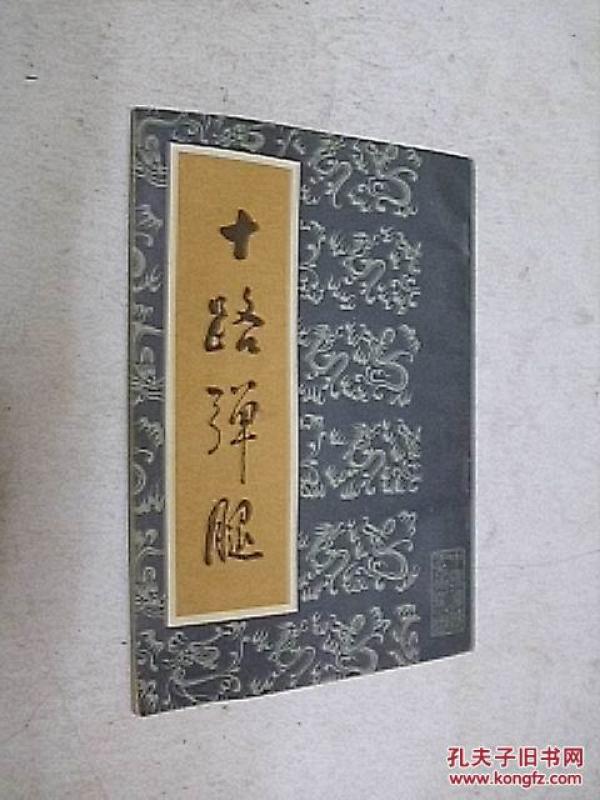 十路弹腿
孔夫子旧书网
www.kongfz.com